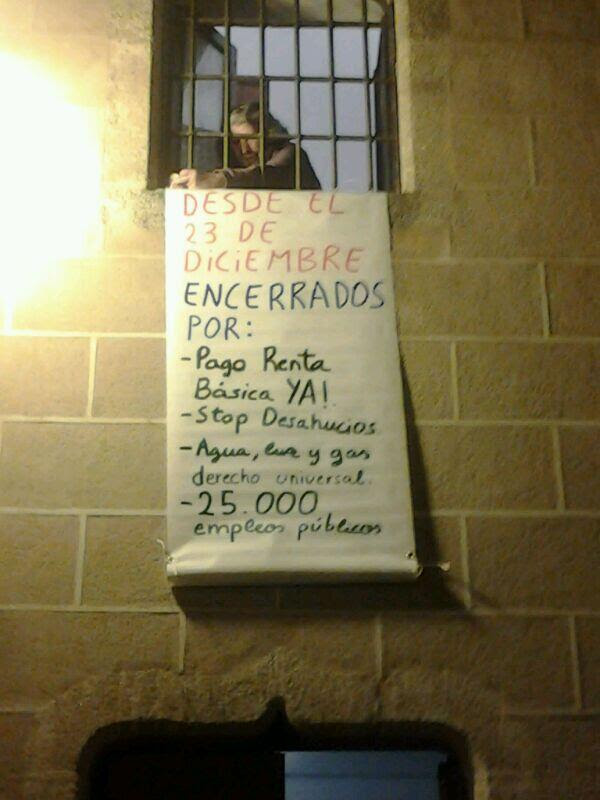 DESDE EL
23 DE
DICIEMBRE
ENCERRADOS
POR:
-Pago Renta
Básica YA!
-Stop Desahucios
-Agua, luz y gas
derecho universal.
-25.000
empleos públicos